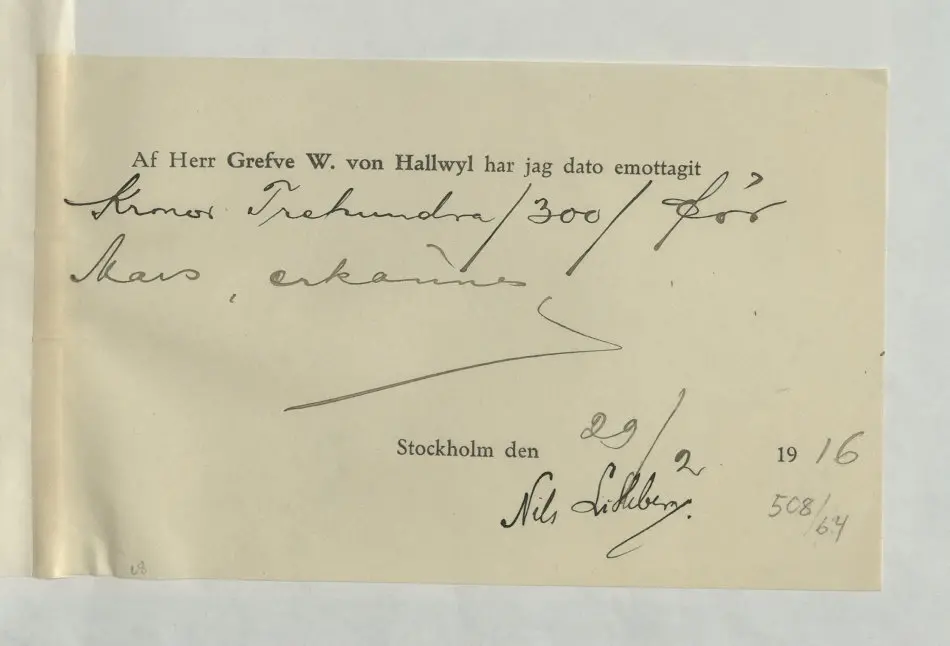 Af Herr Grefve W. von Hallwyl har jag dato emottagit
Kronor Trehundra /300/ för
Mars, erkännes
Stockholm den 29/2 1916
Nils
508/64